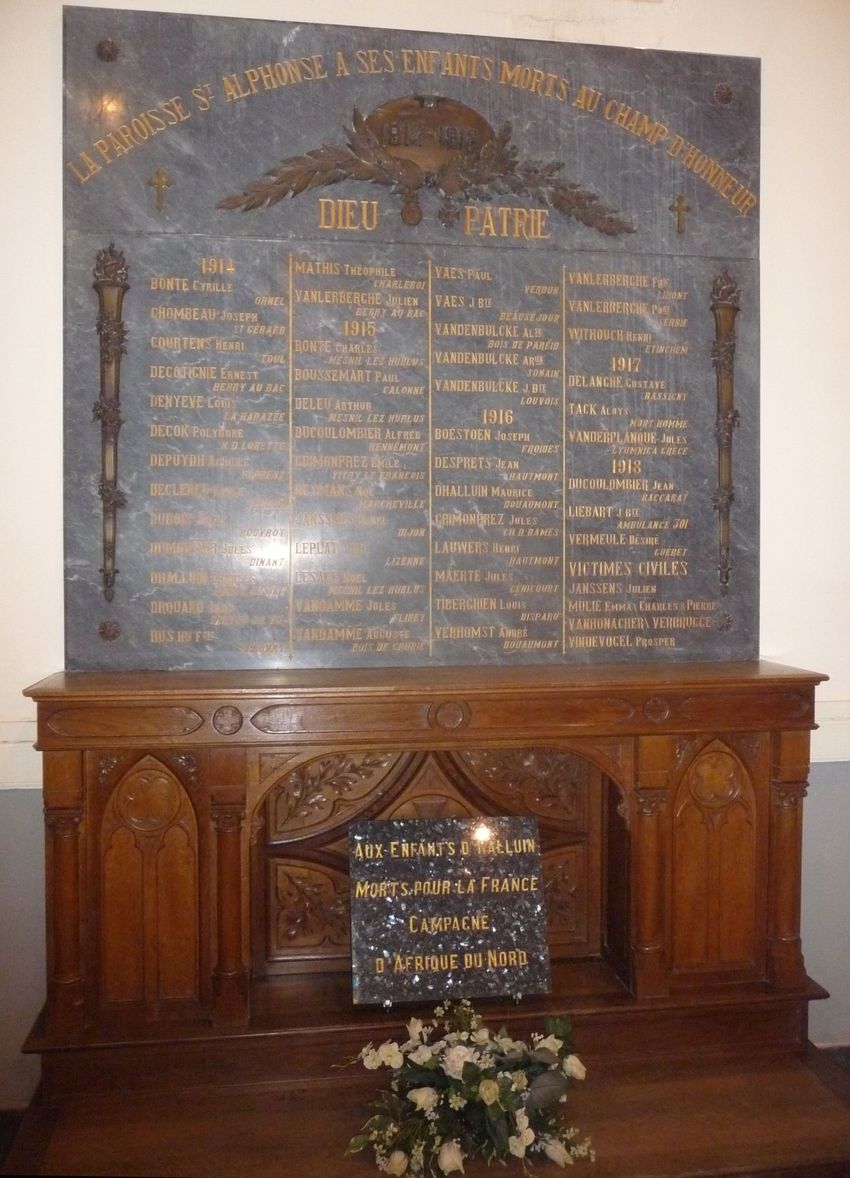 LA PAROISSE ST ALPHONSE A SES ENFANTS MORTS AU CHAMP D'HONNEUR
1914-1918
DIEU PATRIE
1914
BONTE CYRILLE
ORNEL
CHOMBEAU JOSEPH
ST GÉRARD
COURTENS HENRI
TOUL
DECOTIGNIE ERNEST
BERRY AU BAC
DENYEVE LOUIS
LA HARAZÉE
DECOK POLYDORE
N.D. LORETTE
DEPUYDH
DECLERCQ
DUBOIS
ROUVROY
JULES
DINANT
DHALLUIN
DROUARD
DUSHY
MATHIS THÉOPHILE
CHARLEROI
VANLERBERGHE JULIEN
BERRY AU BAC
1915
BONTE CHARLES
MESNIL LES HURLUS
BOUSSEMART PAUL
CALONNE
DELEU ARTHUR
MESNIL LEZ HURLUS
DUCOULOMBIER ALFRED
HENNÉMONT
GRIMONPREZ EMILE
VITRY LE FRANCOIS
NOË
MARCHEVILLE
JANSSENS HENRI
DIJON
LEPLAT
LIZERNE
LESAGE NOEL
MESNIL LEZ HURLUS
VANDAMME JULES
FLIREY
VANDAMME AUGUSTE
BOIS DE GRURIE
VAES PAUL
VERDUN
VAES J. BTE
BEAUSEJOUR
VANDENBULCKE
BOIS DE PAREID
VANDENBULCKE
SONAIN
VANDENBULCKE J. BTE
LOUVOIS
1916
BOESTOEN JOSEPH
FROIDES
DESPRETS JEAN
HAUTMONT
DHALLUIN MAURICE
DOUAUMONT
GRIMONPREZ JULES
CH. D. DAMES
LAUWERS HENRI
HAUTMONT
MAERTE JULES
GENICOURT
TIBERGHIEN LOUIS
DISPARU
VERHOMST ANDRÉ
DOUAUMONT
VANLERBERGHE
LIHONT
VANLERBERGHE
SERBIE
WITHOUCH HENRI
ETINCHEM
1917
DELANGHE GUSTAVE
BASSIGNY
TACK ALOYS
MORT HOMME
VANDERPLANQUE JULES
LYUMNICA GRÈCE
1918
DUCOULOMBIER JEAN
BACCARAT
LIEBART J. BTE
AMBULANCE 301
VERMEULE DÉSIRÉ
GUÉRET
VICTIMES CIVILES
JANSSENS JULIEN
MULIE EMMA, CHARLES & PIERRE
VANHONACHER/VERBRUGGE
VINDEVOGEL PROSPER
AUX ENFANTS D'HALLUIN
MORTS POUR LA FRANCE
CAMPAGNE
D'AFRIQUE DU NORD